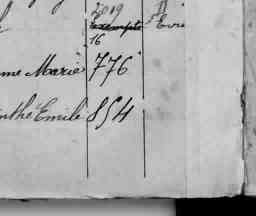 2019
Exempte
16
me Marie 776
inthe Emile 854